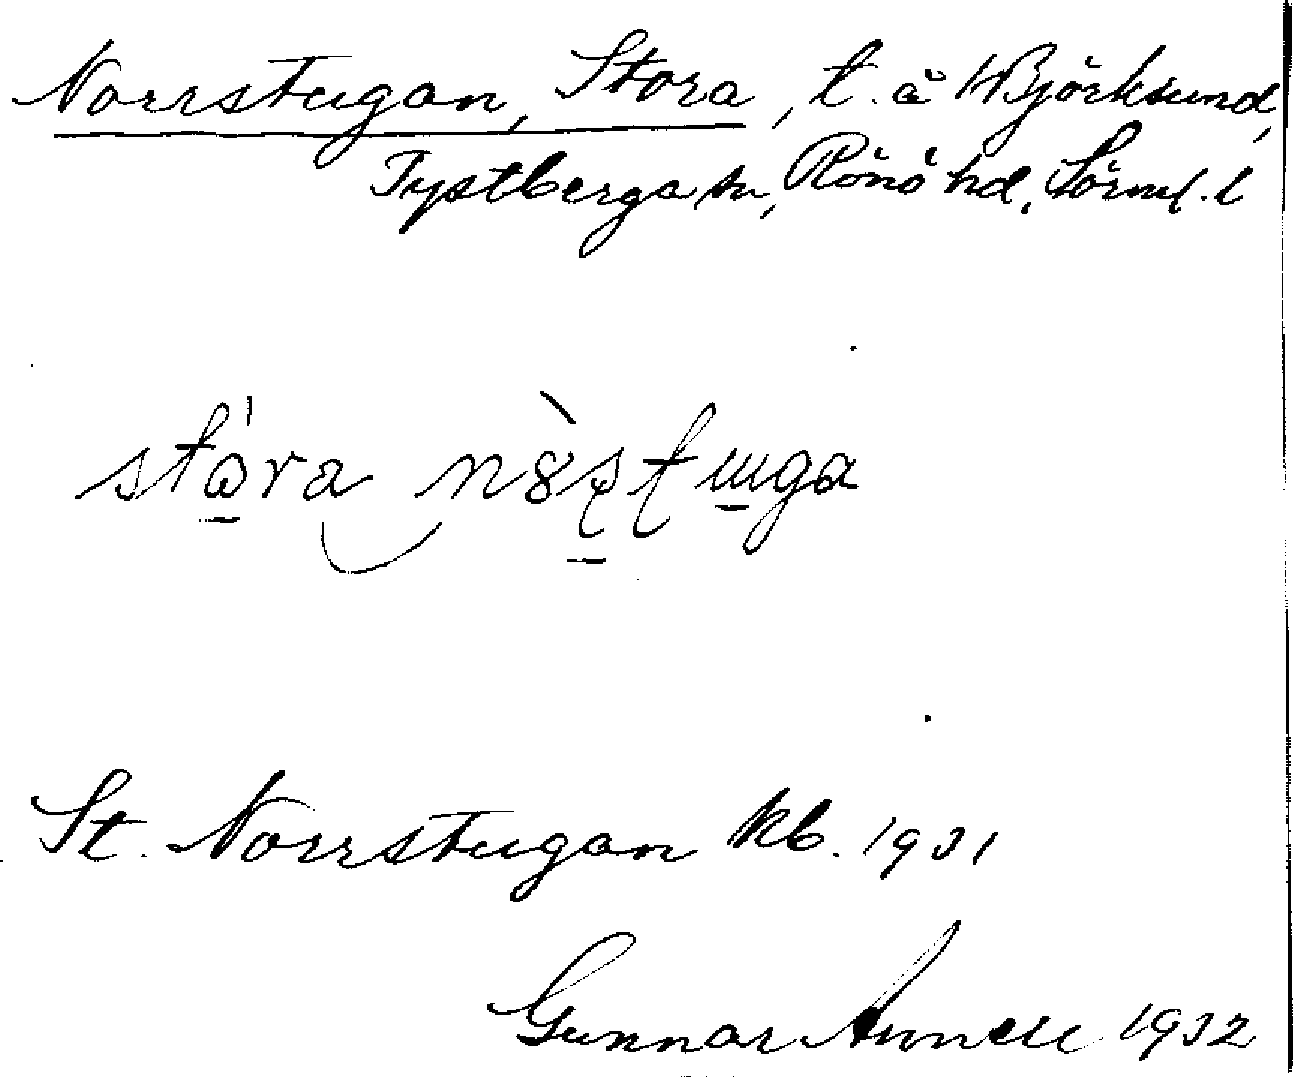 Norrstugan, Stora, t. å Björksund,
Tystberga sn, Rönö hd, Sörml. l
stɷ̀ra n8̀ʂʈɯga
St. Norrstugan kb. 1931
Gunnar Annell 1932